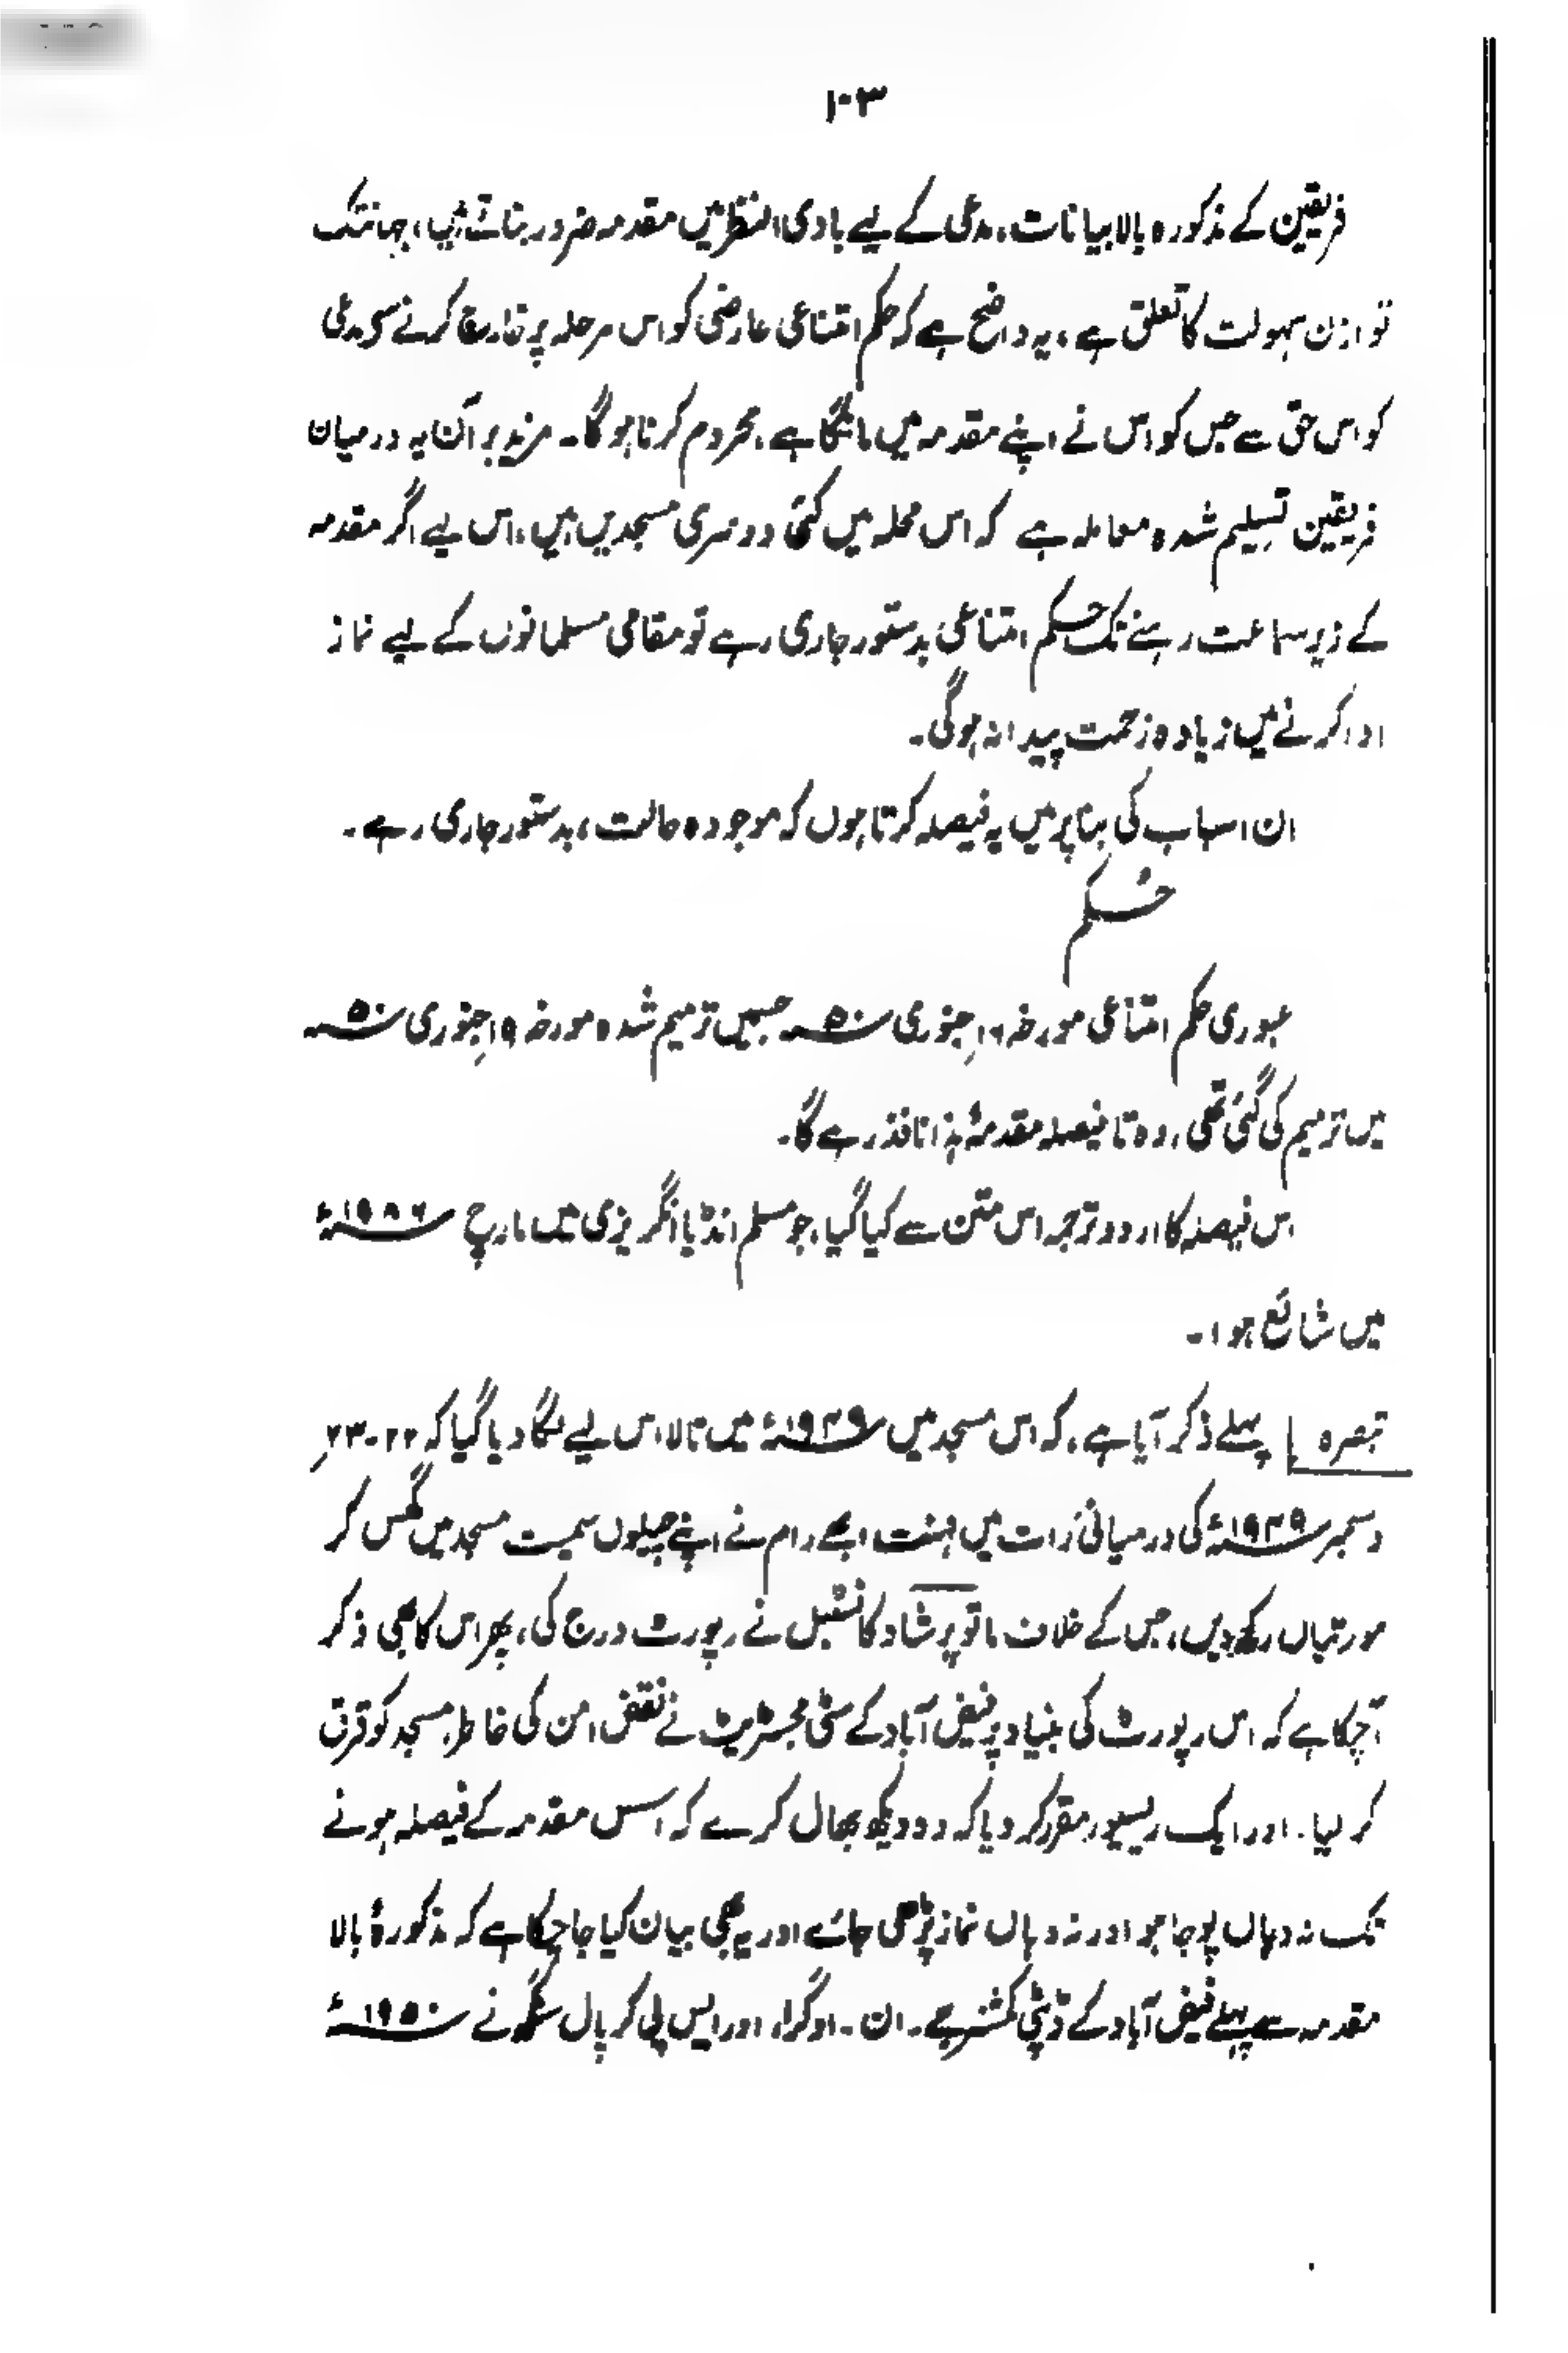 ۱۰۳
فریقین کے مذکورہ بالا بیانات، مدعی کے لیے بادی النظر میں مقدمہ ضرور بناتے ہیں، جہانتک
توازن سہولت کا تعلق ہے، یہ واضح ہے کہ حکم امتناعی عارضی کو اس مرحلہ پر خارج کرنے سے مدعی
کو اس حق سے جس کو اس نے اپنے مقدمہ میں مانگا ہے، محروم کرنا ہوگا۔ مزید برآں یہ درمیان
فریقین تسلیم شدہ معاملہ ہے کہ اس محلہ میں کئی دوسری مسجدیں ہیں، اس لیے اگر مقدمہ
کے زیر سماعت رہنے تک حکم امتناعی بدستور جاری رہے تو مقامی مسلمانوں کے لیے نماز
ادا کرنے میں زیادہ زحمت پیدا نہ ہوگی۔
ان اسباب کی بنا پر میں یہ فیصلہ کرتا ہوں کہ موجودہ حالت، بدستور جاری رہے۔
حکم
عبوری حکم امتناعی مورخہ ۱۶؍جنوری ۵۰ءسہ جسمیں ترمیم شدہ مورخہ ۱۹؍جنوری ۵۰ءسہ
میں ترمیم کی گئی تھی، وہ تا فیصلہ مقدمۂ ہذا نافذ رہے گا۔
اس فیصلہ کا اردو ترجمہ اس متن سے کیا گیا، جو مسلم انڈیا انگریزی میں مارچ ۱۹۸۶ء
میں شائع ہوا۔
تبصرہ | پہلے ذکر آیا ہے، کہ اس مسجد میں ۱۹۴۹ء میں تالا اس لیے لگا دیا گیا کہ ۲۲-۲۳؍
دسمبر ۱۹۴۹ء کی درمیانی رات میں مہنت ابھے رام نے اپنے چیلوں سمیت مسجد میں گھس کر
مورتیاں رکھ دیں، جس کے خلاف ماتو پرشاد کانسٹبل نے رپورٹ درج کی، پھر اس کا بھی ذکر
آچکا ہے کہ اس رپورٹ کی بنیاد پر فیض آباد کے سٹی مجسٹریٹ نے نقض امن کی خاطر، مسجد کو قرق
کر لیا۔ اور ایک ریسیور مقرر کر دیا کہ وہ دیکھ بھال کرے کہ اس مقدمہ کے فیصلہ ہونے
تک نہ وہاں پوجا ہو اور نہ وہاں نماز پڑھی جائے اور یہ بھی بیان کیا جا چکا ہے کہ مذکورۂ بالا
مقدمہ سے پہلے فیض آباد کے ڈپٹی کمشنر جے۔ ان۔ اوگرا، اور ایس پی کرپال سنگھ نے ۱۹۵۰ء